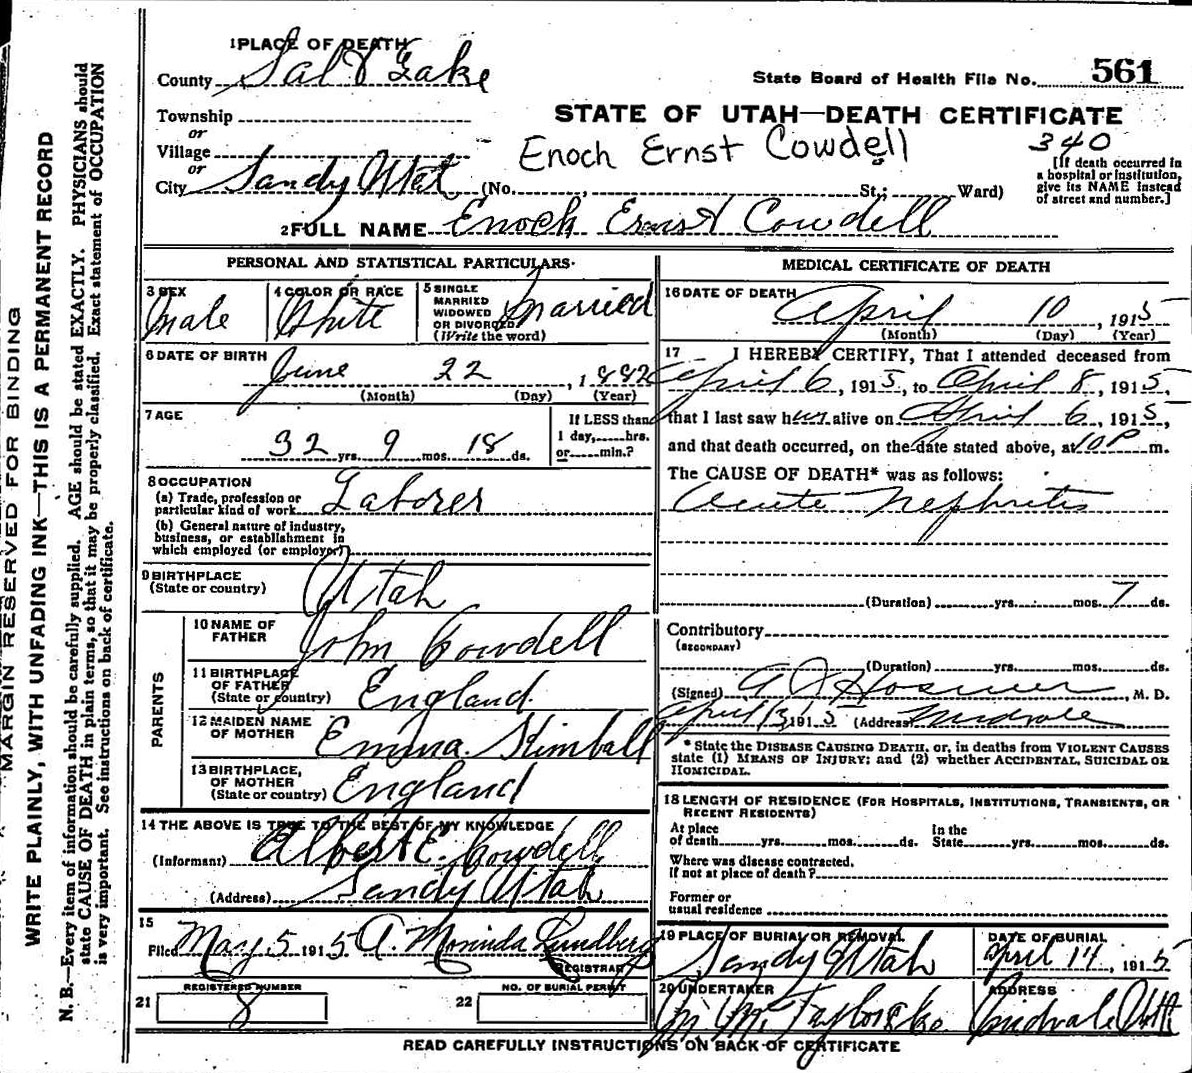 MARGIN RESERVED FOR BINDING
WRITE PLAINLY, WITH UNFADING INK—THIS IS A PERMANENT RECORD
N. B.—Every item of information should be carefully supplied. AGE should be stated EXACTLY. PHYSICIANS should
state CAUSE OF DEATH in plain terms, so that it may be properly classified. Exact statement of OCCUPATION
is very important. See instructions on back of certificate.
1 PLACE OF DEATH
County Salt Lake
State Board of Health File No. 561
Township
or
Village
or
City Sandy Utah (No. , St.; Ward)
STATE OF UTAH—DEATH CERTIFICATE
Enoch Ernst Cowdell
340
[If death occurred in
a hospital or institution,
give its NAME instead
of street and number.]
2 FULL NAME Enoch Ernst Cowdell
PERSONAL AND STATISTICAL PARTICULARS.
3 SEX
Male
4 COLOR OR RACE
White
5 SINGLE
MARRIED
WIDOWED
OR DIVORCED
(Write the word)
Married
6 DATE OF BIRTH
June 22, 1882
(Month) (Day) (Year)
7 AGE
32 yrs. 9 mos. 18 ds.
If LESS than
1 day, hrs.
or min.?
8 OCCUPATION
(a) Trade, profession or
particular kind of work Laborer
(b) General nature of industry,
business, or establishment in
which employed (or employer)
9 BIRTHPLACE
(State or country) Utah
PARENTS
10 NAME OF
FATHER John Cowdell
11 BIRTHPLACE
OF FATHER
(State or country) England
12 MAIDEN NAME
OF MOTHER Emma Kimball
13 BIRTHPLACE,
OF MOTHER
(State or country) England
14 THE ABOVE IS TRUE TO THE BEST OF MY KNOWLEDGE
(Informant) Albert E. Cowdell
(Address) Sandy Utah
15
Filed May 5 1915 A. Morinda Lundberg
REGISTRAR
21 REGISTERED NUMBER
8
22 NO. OF BURIAL PERMIT
MEDICAL CERTIFICATE OF DEATH
16 DATE OF DEATH
April 10, 1915
(Month) (Day) (Year)
17 I HEREBY CERTIFY, That I attended deceased from
April 6, 1915, to April 8, 1915,
that I last saw him alive on April 6, 1915,
and that death occurred, on the date stated above, at 10 P m.
The CAUSE OF DEATH* was as follows:
Acute Nephritis
(Duration) yrs. mos. 7 ds.
Contributory
(SECONDARY)
(Duration) yrs. mos. ds.
(Signed) Hosmer, M. D.
April 13 1915 (Address) Midvale
* State the DISEASE CAUSING DEATH, or, in deaths from VIOLENT CAUSES
state (1) MEANS OF INJURY; and (2) whether ACCIDENTAL, SUICIDAL OR
HOMICIDAL.
18 LENGTH OF RESIDENCE (FOR HOSPITALS, INSTITUTIONS, TRANSIENTS, OR
RECENT RESIDENTS)
At place
of death yrs. mos. ds.
In the
State yrs. mos. ds.
Where was disease contracted.
If not at place of death?
Former or
usual residence
19 PLACE OF BURIAL OR REMOVAL
Sandy Utah
DATE OF BURIAL
April 14, 1915
20 UNDERTAKER
ADDRESS
Midvale Utah
READ CAREFULLY INSTRUCTIONS ON BACK OF CERTIFICATE